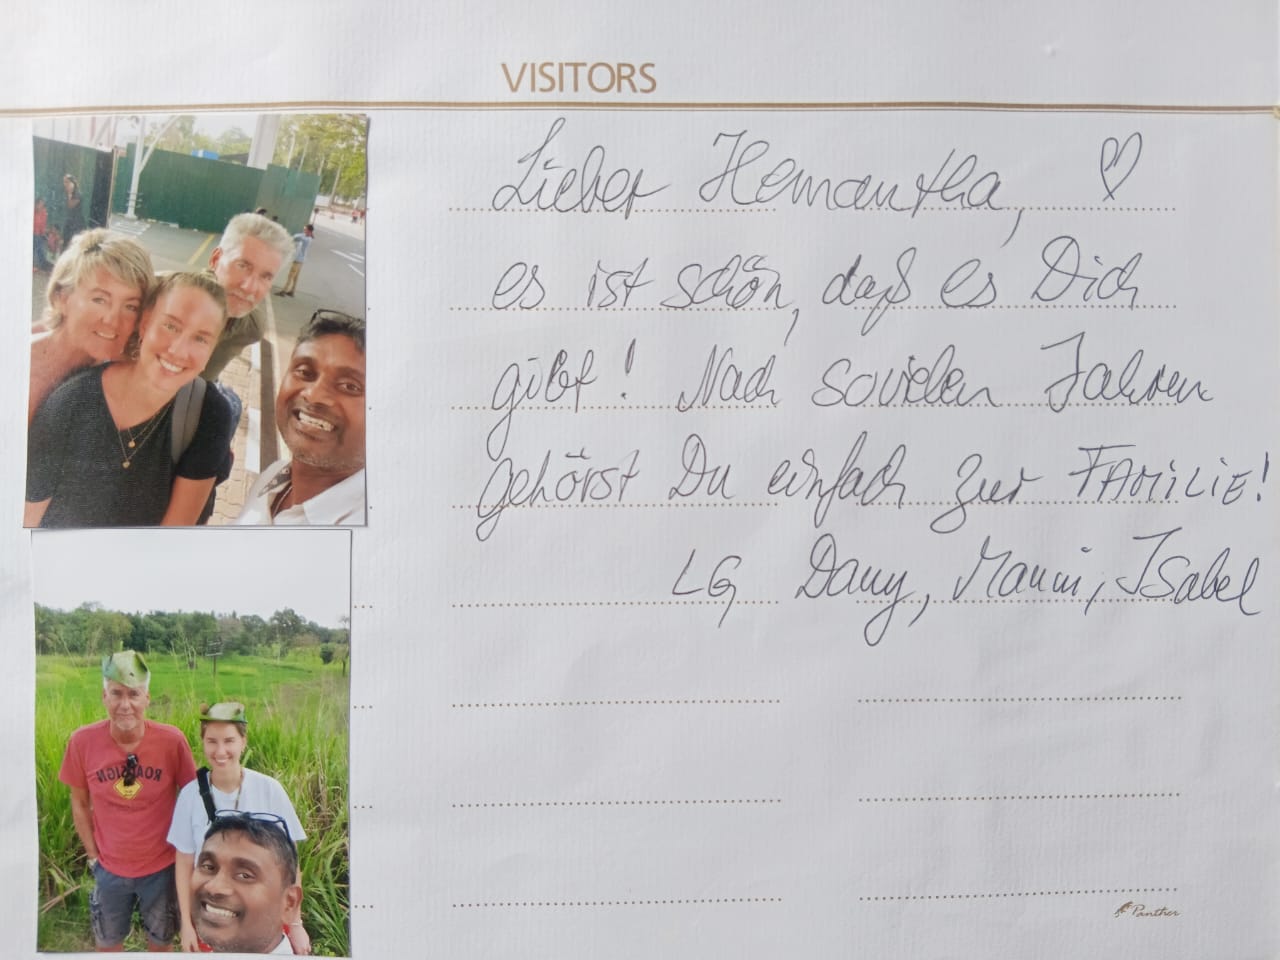 VISITORS
Lieber Hemantha, ♡
es ist schön, daß es Dich
gibt! Nach sovielen Jahren
gehörst Du einfach zur FAMILIE!
LG Dany, Manni, Isabel
ROADSIGN
Panther